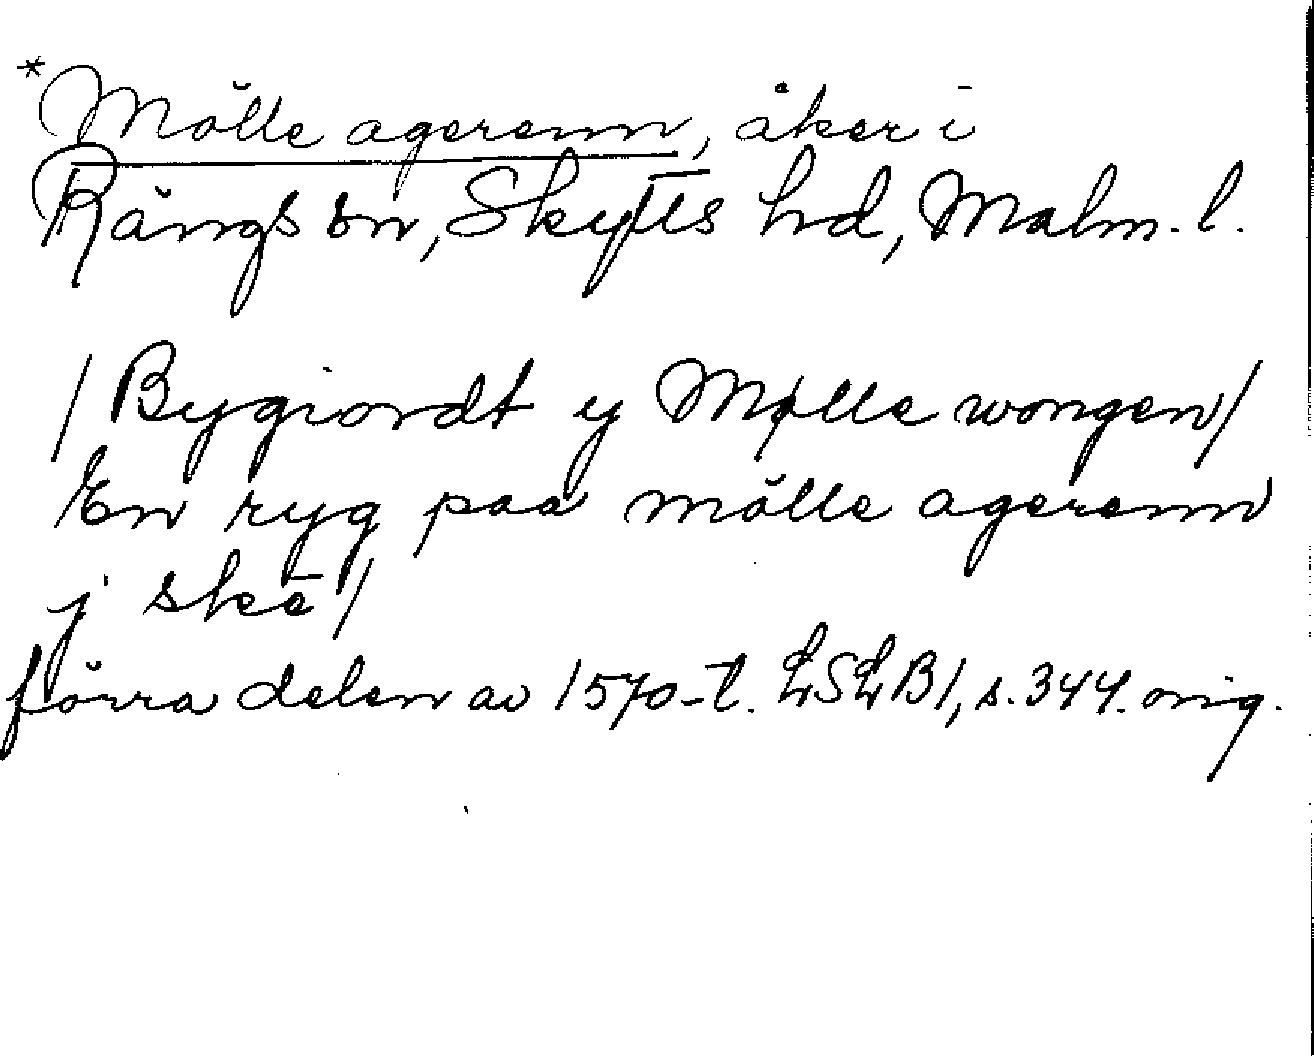 *Mölle agerenn, åker i
Rängs sn, Skytts hd, Malm. l.
/Bygiordt y Mølle wongen/
En ryg paa mölle agerenn
j skē/
förra delen av 1570-t. LSLB1, s. 344. orig.